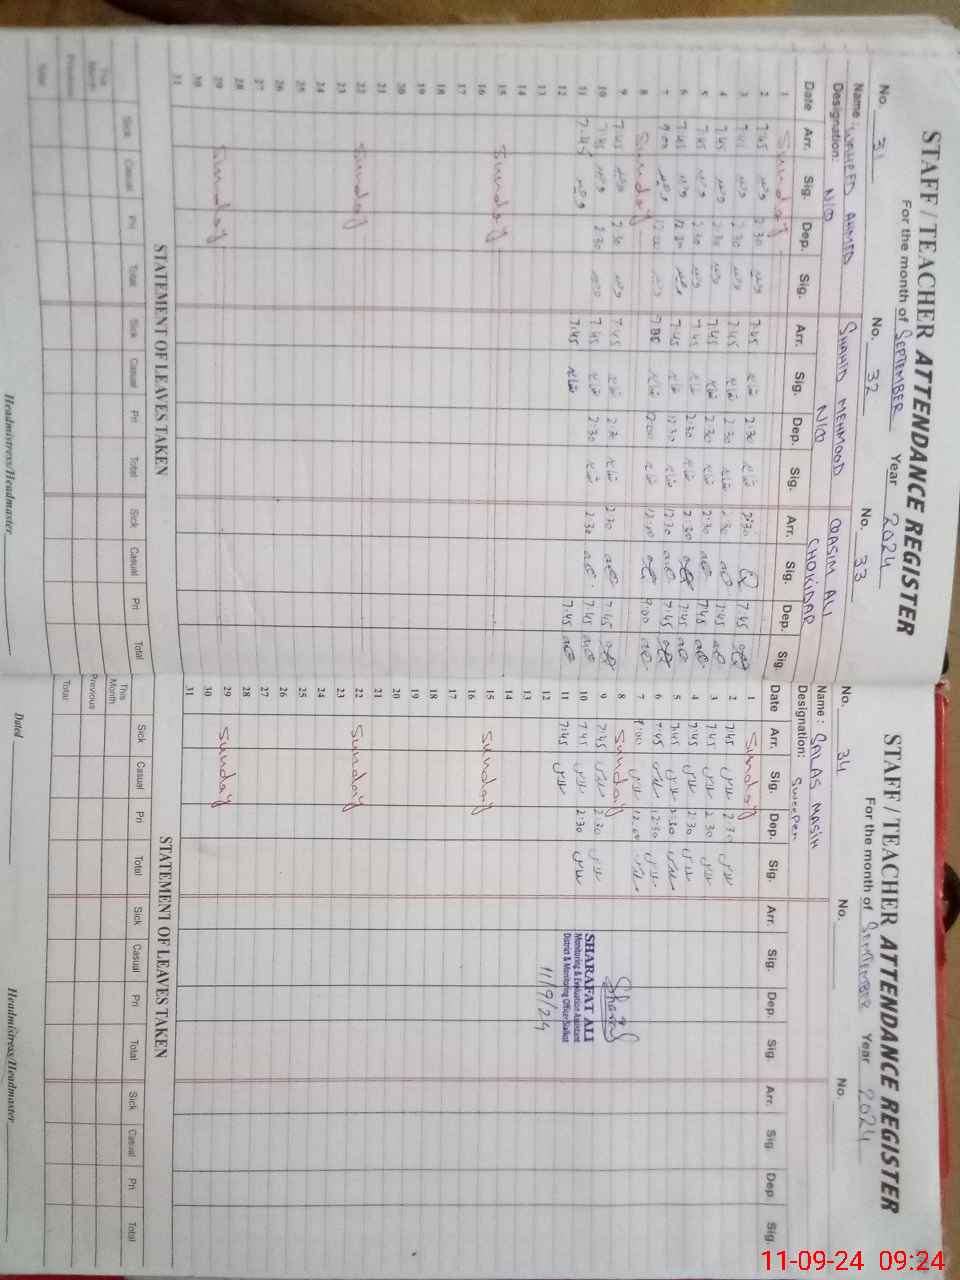 STAFF / TEACHER ATTENDANCE REGISTER
For the month of SEPTEMBER Year 2024
No. 31 No. 32 No. 33
Name: WAHEED AHMED SHAHID MEHMOOD QASIM ALI
Designation: N/Q N/Q CHOKIDAR
Date Arr. Sig. Dep. Sig. Arr. Sig. Dep. Sig. Arr. Sig. Dep. Sig.
1 Sunday
2 7:45 2:30 7:45 2:30 2:30 7:45
3 7:45 2:30 7:45 2:30 2:30 7:45
4 7:45 2:30 7:45 2:30 2:30 7:45
5 7:45 2:30 7:45 2:30 2:30 7:45
6 7:45 12:30 7:45 12:30 12:30 7:45
7 9:00 12:00 9:00 12:00 12:00 9:00
8 Sunday
9 7:45 2:30 7:45 2:30 2:30 7:45
10 7:45 2:30 7:45 2:30 2:30 7:45
11 7:45 7:45 7:45
12
13
14
15 Sunday
16
17
18
19
20
21
22 Sunday
23
24
25
26
27
28
29 Sunday
30
31
STATEMENT OF LEAVES TAKEN
Sick Casual Pri Total Sick Casual Pri Total Sick Casual Pri Total
This Month
Previous
Total
Headmistress/Headmaster
STAFF / TEACHER ATTENDANCE REGISTER
For the month of SEPTEMBER Year 2024
No. 34 No. No.
Name: SALAS MASIH
Designation: Sweeper
Date Arr. Sig. Dep. Sig. Arr. Sig. Dep. Sig. Arr. Sig. Dep. Sig.
1 Sunday
2 7:45 2:30
3 7:45 2:30
4 7:45 2:30
5 7:45 2:30
6 7:45 12:30
7 9:00 12:00
8 Sunday
9 7:45 2:30
10 7:45 2:30
11 7:45
12
13
14
15 Sunday
16
17
18
19
20
21
22 Sunday
23
24
25
26
27
28
29 Sunday
30
31
SHARAFAT ALI
Monitoring & Evaluation Assistant
District Monitoring Officer Sialkot
11/9/24
STATEMENT OF LEAVES TAKEN
Sick Casual Pri Total Sick Casual Pri Total Sick Casual Pri Total
This Month
Previous
Total
Dated Headmistress/Headmaster
11-09-24 09:24